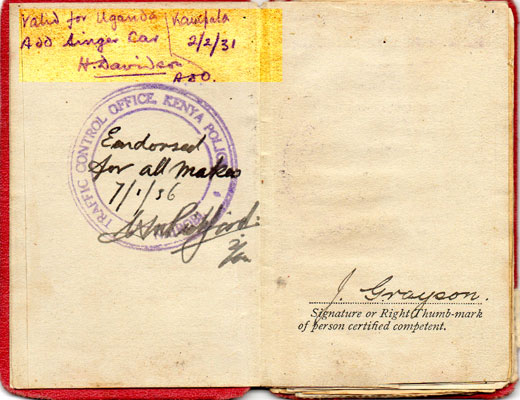 Valid for Uganda
Add Singer Car
H. Davidson
Kampala
2/2/31
ADO.
TRAFFIC CONTROL OFFICE, KENYA POLICE
Endorsed
for all makes
7/1/36
J. Grayson.
Signature or Right Thumb-mark
of person certified competent.